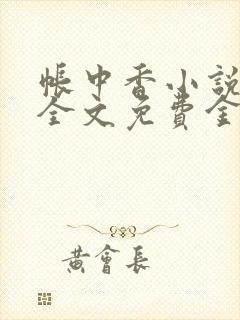 帳中香小說
全文免費全
黃會長